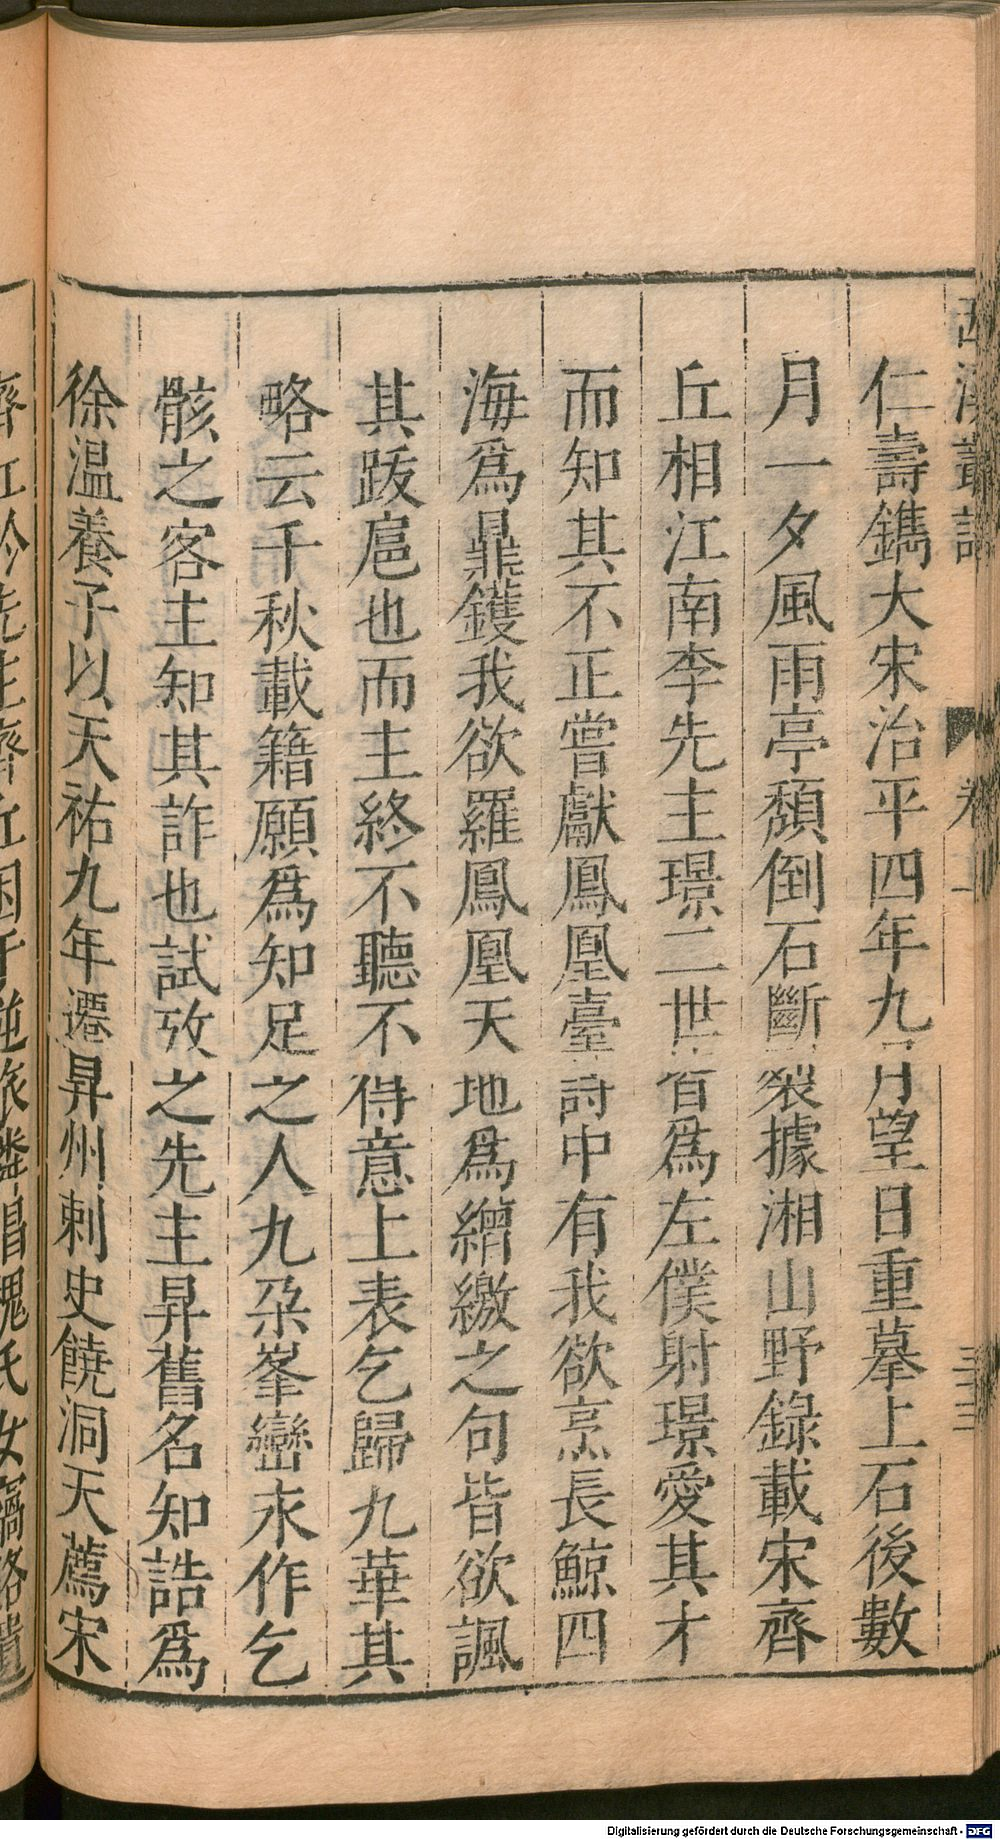 仁壽鐫大宋治平四年九月望日重摹上石後數
月一夕風雨亭頽倒石斷裂據湘山野錄載宋齊
丘相江南李先主璟二世皆爲左僕射璟愛其才
而知其不正嘗獻鳳凰臺詩中有我欲烹長鯨四
海爲鼎鑊我欲羅鳳凰天地爲繒繳之句皆欲諷
其跋扈也而主終不聽不得意上表乞歸九華其
略云千秋載籍願爲知足之人九朶峯巒永作乞
骸之客主知其詐也試攷之先主昇舊名知誥爲
徐温養子以天祐九年遷昇州刺史饒洞天薦宋
Digitalisierung gefördert durch die Deutsche Forschungsgemeinschaft - DFG